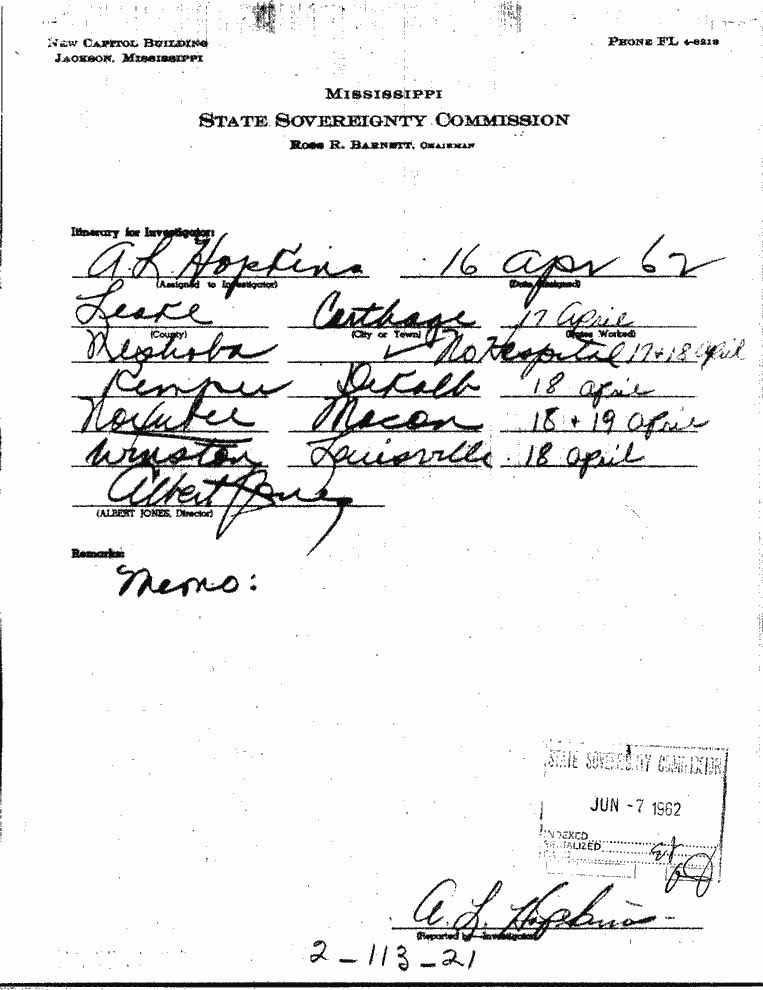 NEW CAPITOL BUILDING
JACKSON, MISSISSIPPI
PHONE FL 4-6218
MISSISSIPPI
STATE SOVEREIGNTY COMMISSION
ROSS R. BARNETT, CHAIRMAN
Itinerary for Investigator:
A. L. Hopkins 16 Apr 62
(Assigned to Investigator) (Date Assigned)
Leake Carthage 17 April
(County) (City or Town) (Dates Worked)
Neshoba ✓ No Hospital 17 + 18 April
Kemper DeKalb 18 April
Noxubee Macon 18 + 19 April
Winston Louisville 18 April
Albert Jones
(ALBERT JONES, Director)
Remarks:
Memo:
STATE SOVEREIGNTY COMMISSION
JUN -7 1962
INDEXED
SERIALIZED
A. L. Hopkins
(Reported by Investigator)
2-113-21